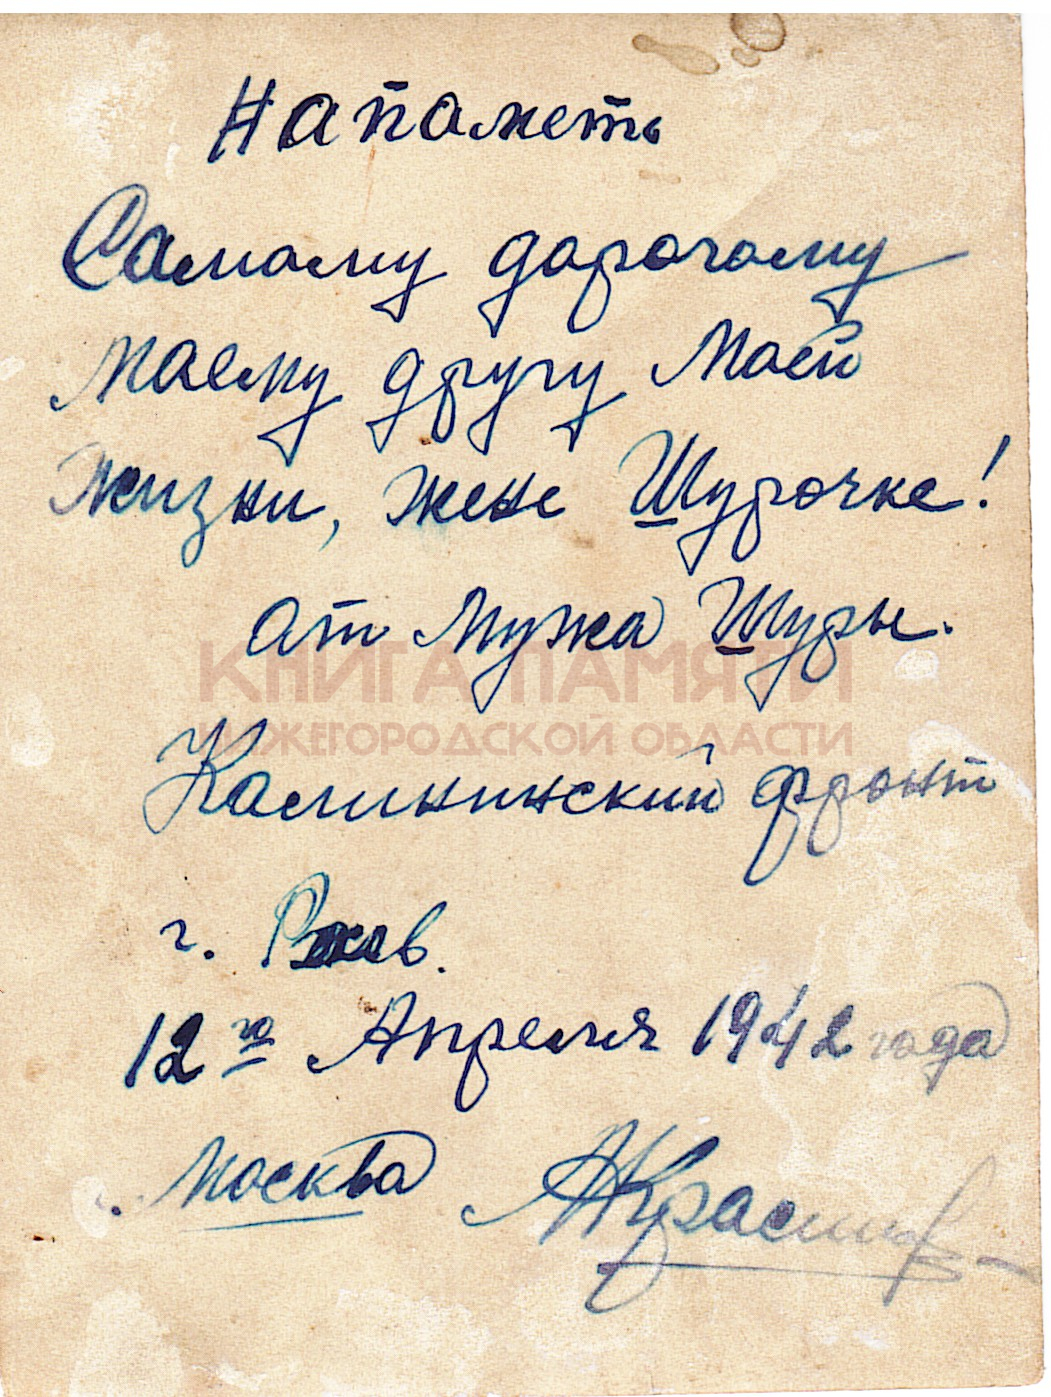 На паметь
Самому дорогому
моему другу моей
жизни, жене Шурочке!
от мужа Шуры.
КНИГА ПАМЯТИ
НИЖЕГОРОДСКОЙ ОБЛАСТИ
Калининский фронт
г. Ржев.
12го Апреля 1942 года
Москва